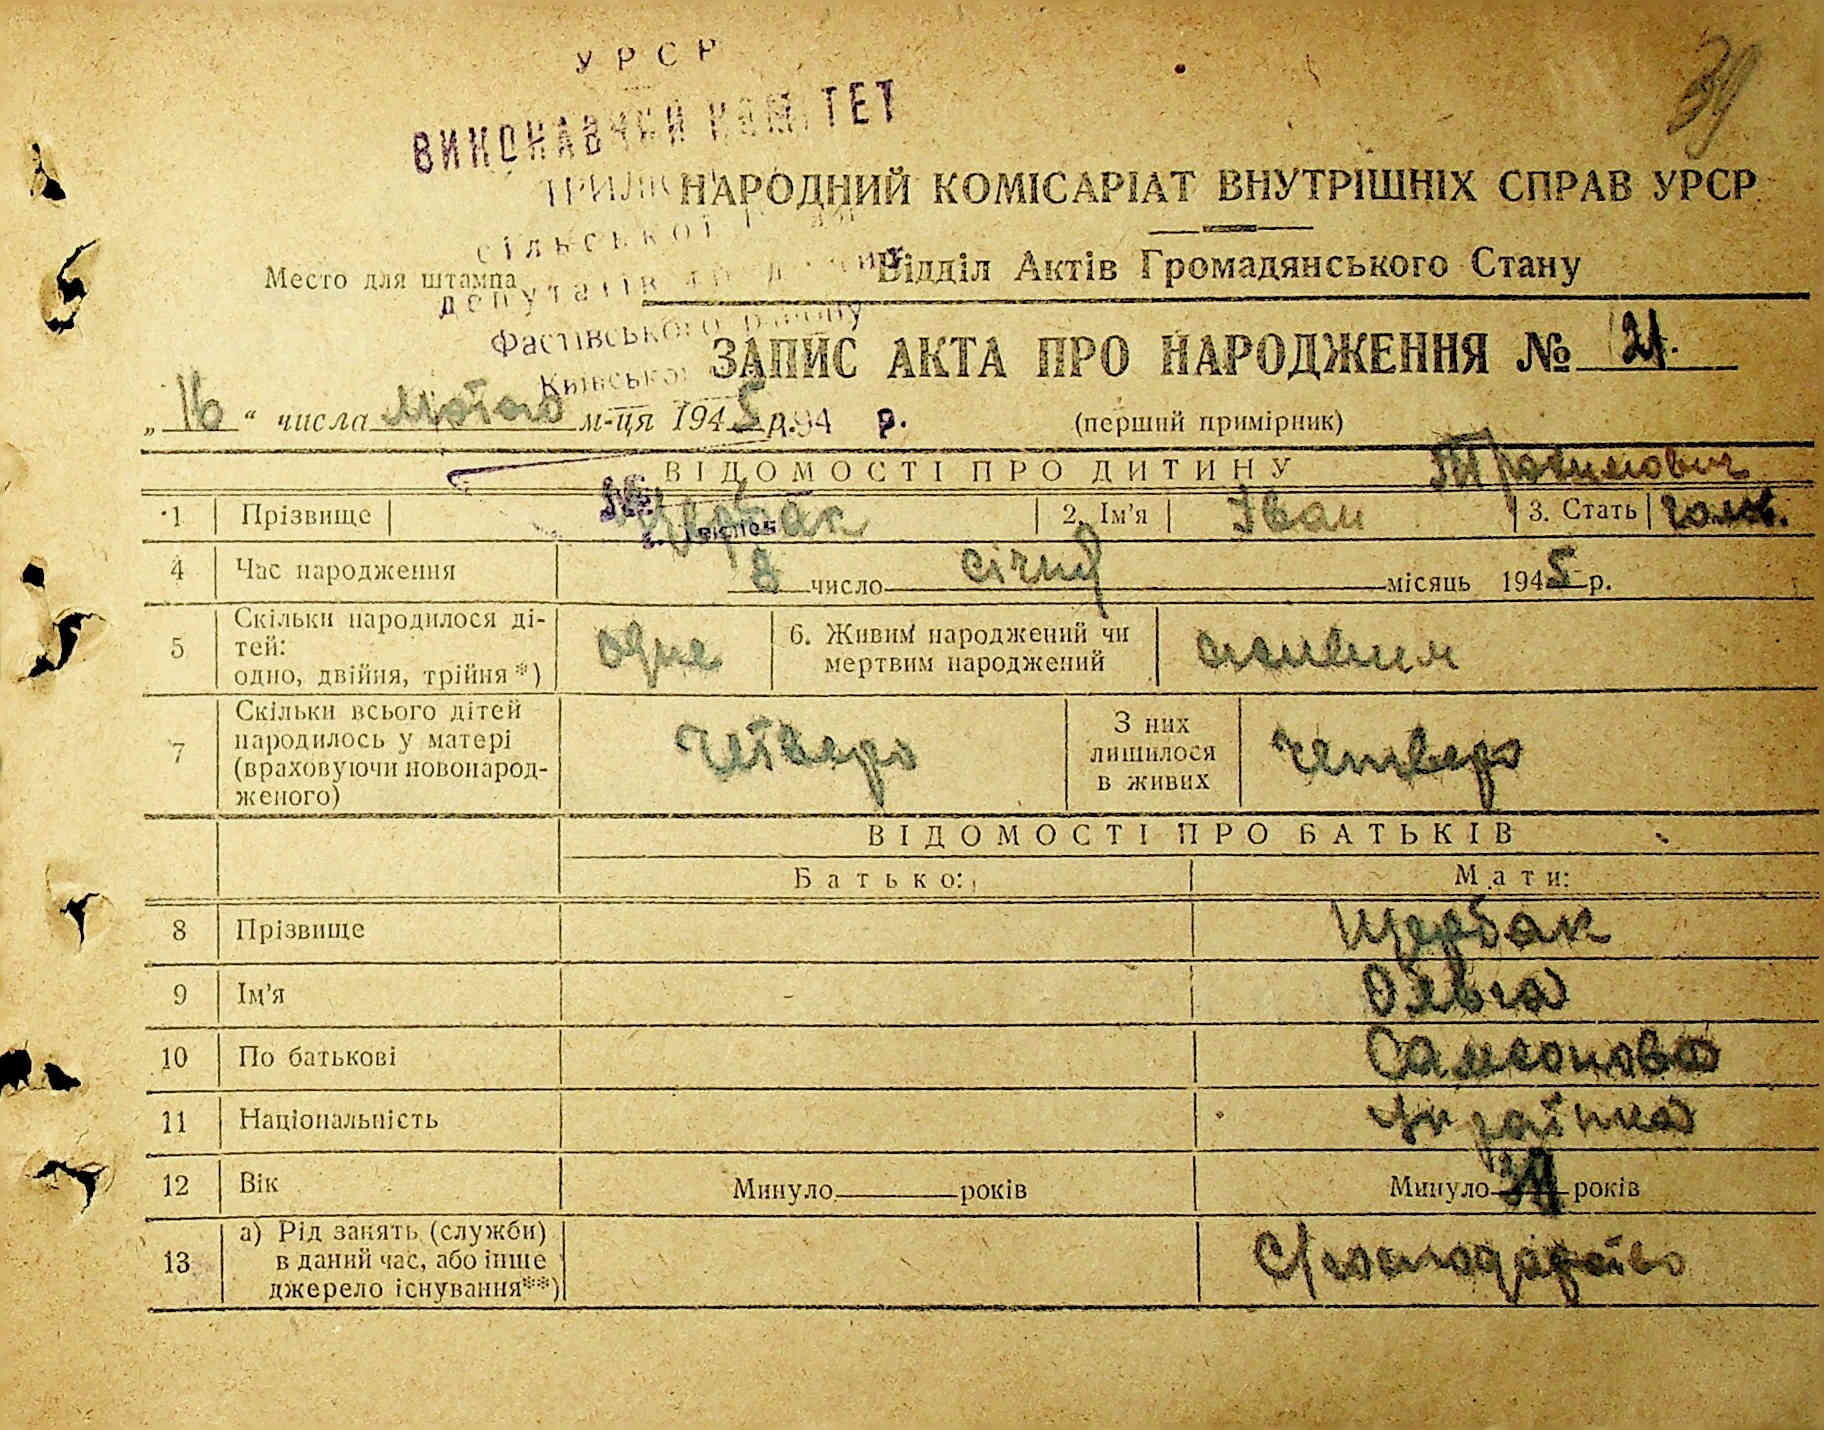 39
УРСР
ВИКОНАВЧИЙ КОМІТЕТ
НАРОДНИЙ КОМІСАРІАТ ВНУТРІШНІХ СПРАВ УРСР
сільської
Место для штампа
Відділ Актів Громадянського Стану
депутатів
Фастівського району
ЗАПИС АКТА ПРО НАРОДЖЕННЯ № 21.
Київської
„16“ числа лютого м-ця 1945 р. 194 р.
(перший примірник)
ВІДОМОСТІ ПРО ДИТИНУ
1 Прізвище Щербак 2. Ім'я Іван 3. Стать чолов.
4 Час народження 8 число січня місяць 1945 р.
5 Скільки народилося ді-
тей:
одно, двійня, трійня *)
одне
6. Живим народжений чи
мертвим народжений
живим
7 Скільки всього дітей
народилось у матері
(враховуючи новонарод-
женого)
четверо
З них
лишилося
в живих
четверо
ВІДОМОСТІ ПРО БАТЬКІВ
Батько: Мати:
8 Прізвище Щербак
9 Ім'я Ольга
10 По батькові Самсоновна
11 Національність Українка
12 Вік Минуло років Минуло років
13 а) Рід занять (служби)
в даний час, або інше
джерело існування**)